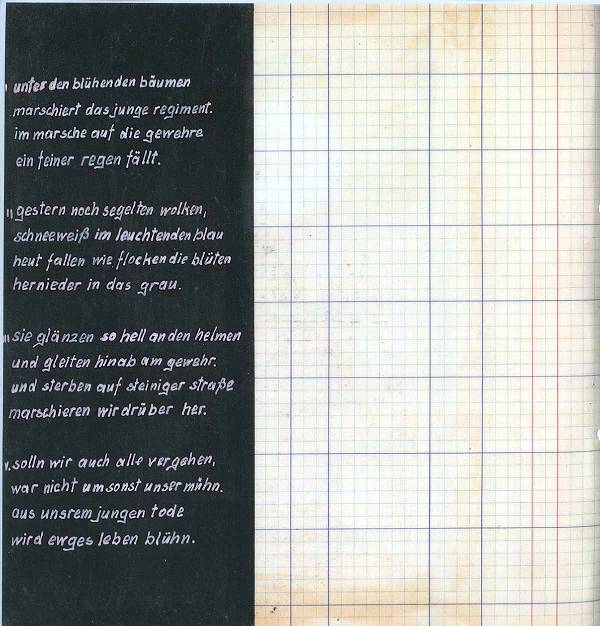 ı unter den blühenden bäumen
marschiert das junge regiment.
im marsche auf die gewehre
ein feiner regen fällt.
ıı gestern noch segelten wolken,
schneeweiß im leuchtenden blau
heut fallen wie flocken die blüten
hernieder in das grau.
ııı sie glänzen so hell an den helmen
und gleiten hinab am gewehr.
und sterben auf steiniger straße
marschieren wir drüber her.
v. solln wir auch alle vergehen,
war nicht umsonst unser mühn.
aus unsrem jungen tode
wird ewges leben blühn.